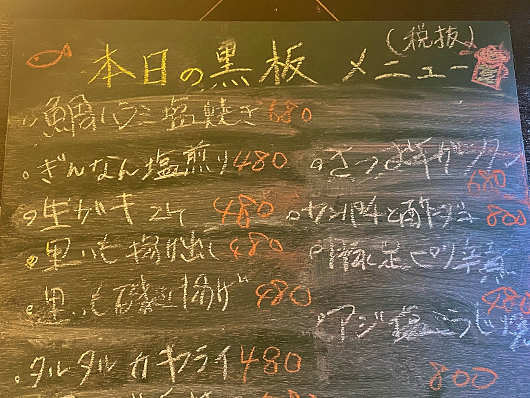 本日の黒板メニュー (税抜)
鯛ハラミ塩焼き 680
ぎんなん塩煎り 480
生ガキ 2ケ 480
里いも揚げ出し 480
里いも磯辺揚げ 480
タルタルカキフライ 480
さつま芋グラタン 680
800
豚足ピリ辛 480
アジ塩こうじ焼
800